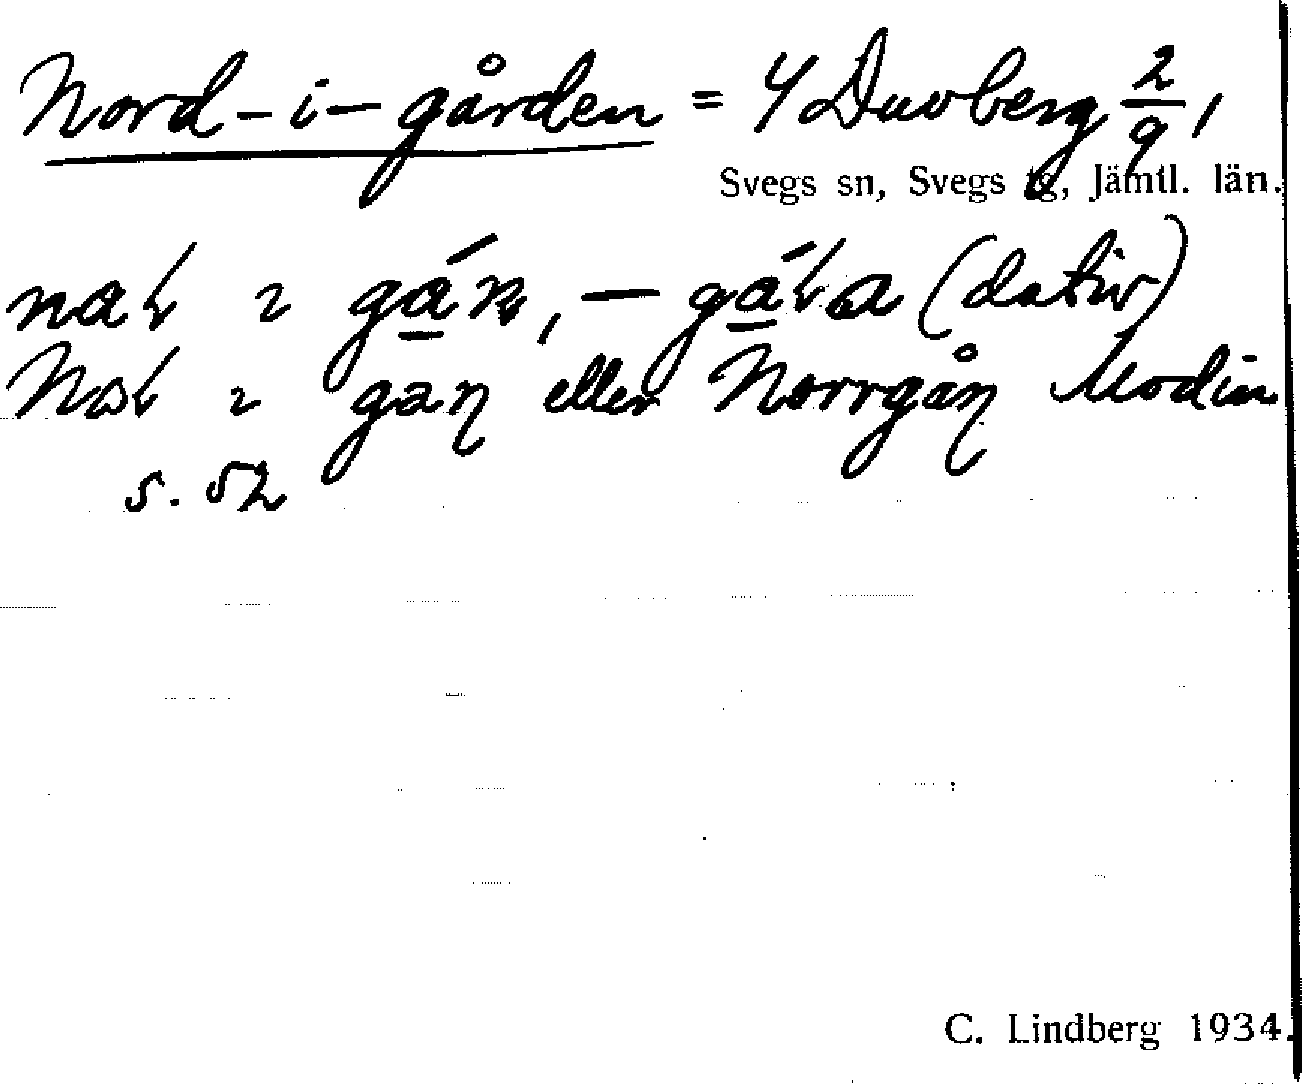 Nord-i-gården = 4 Duvberg 2/9,
Svegs sn, Svegs tg, Jämtl. län.
(dativ)
eller Norrgån Modin
s. 52
C. Lindberg 1934.